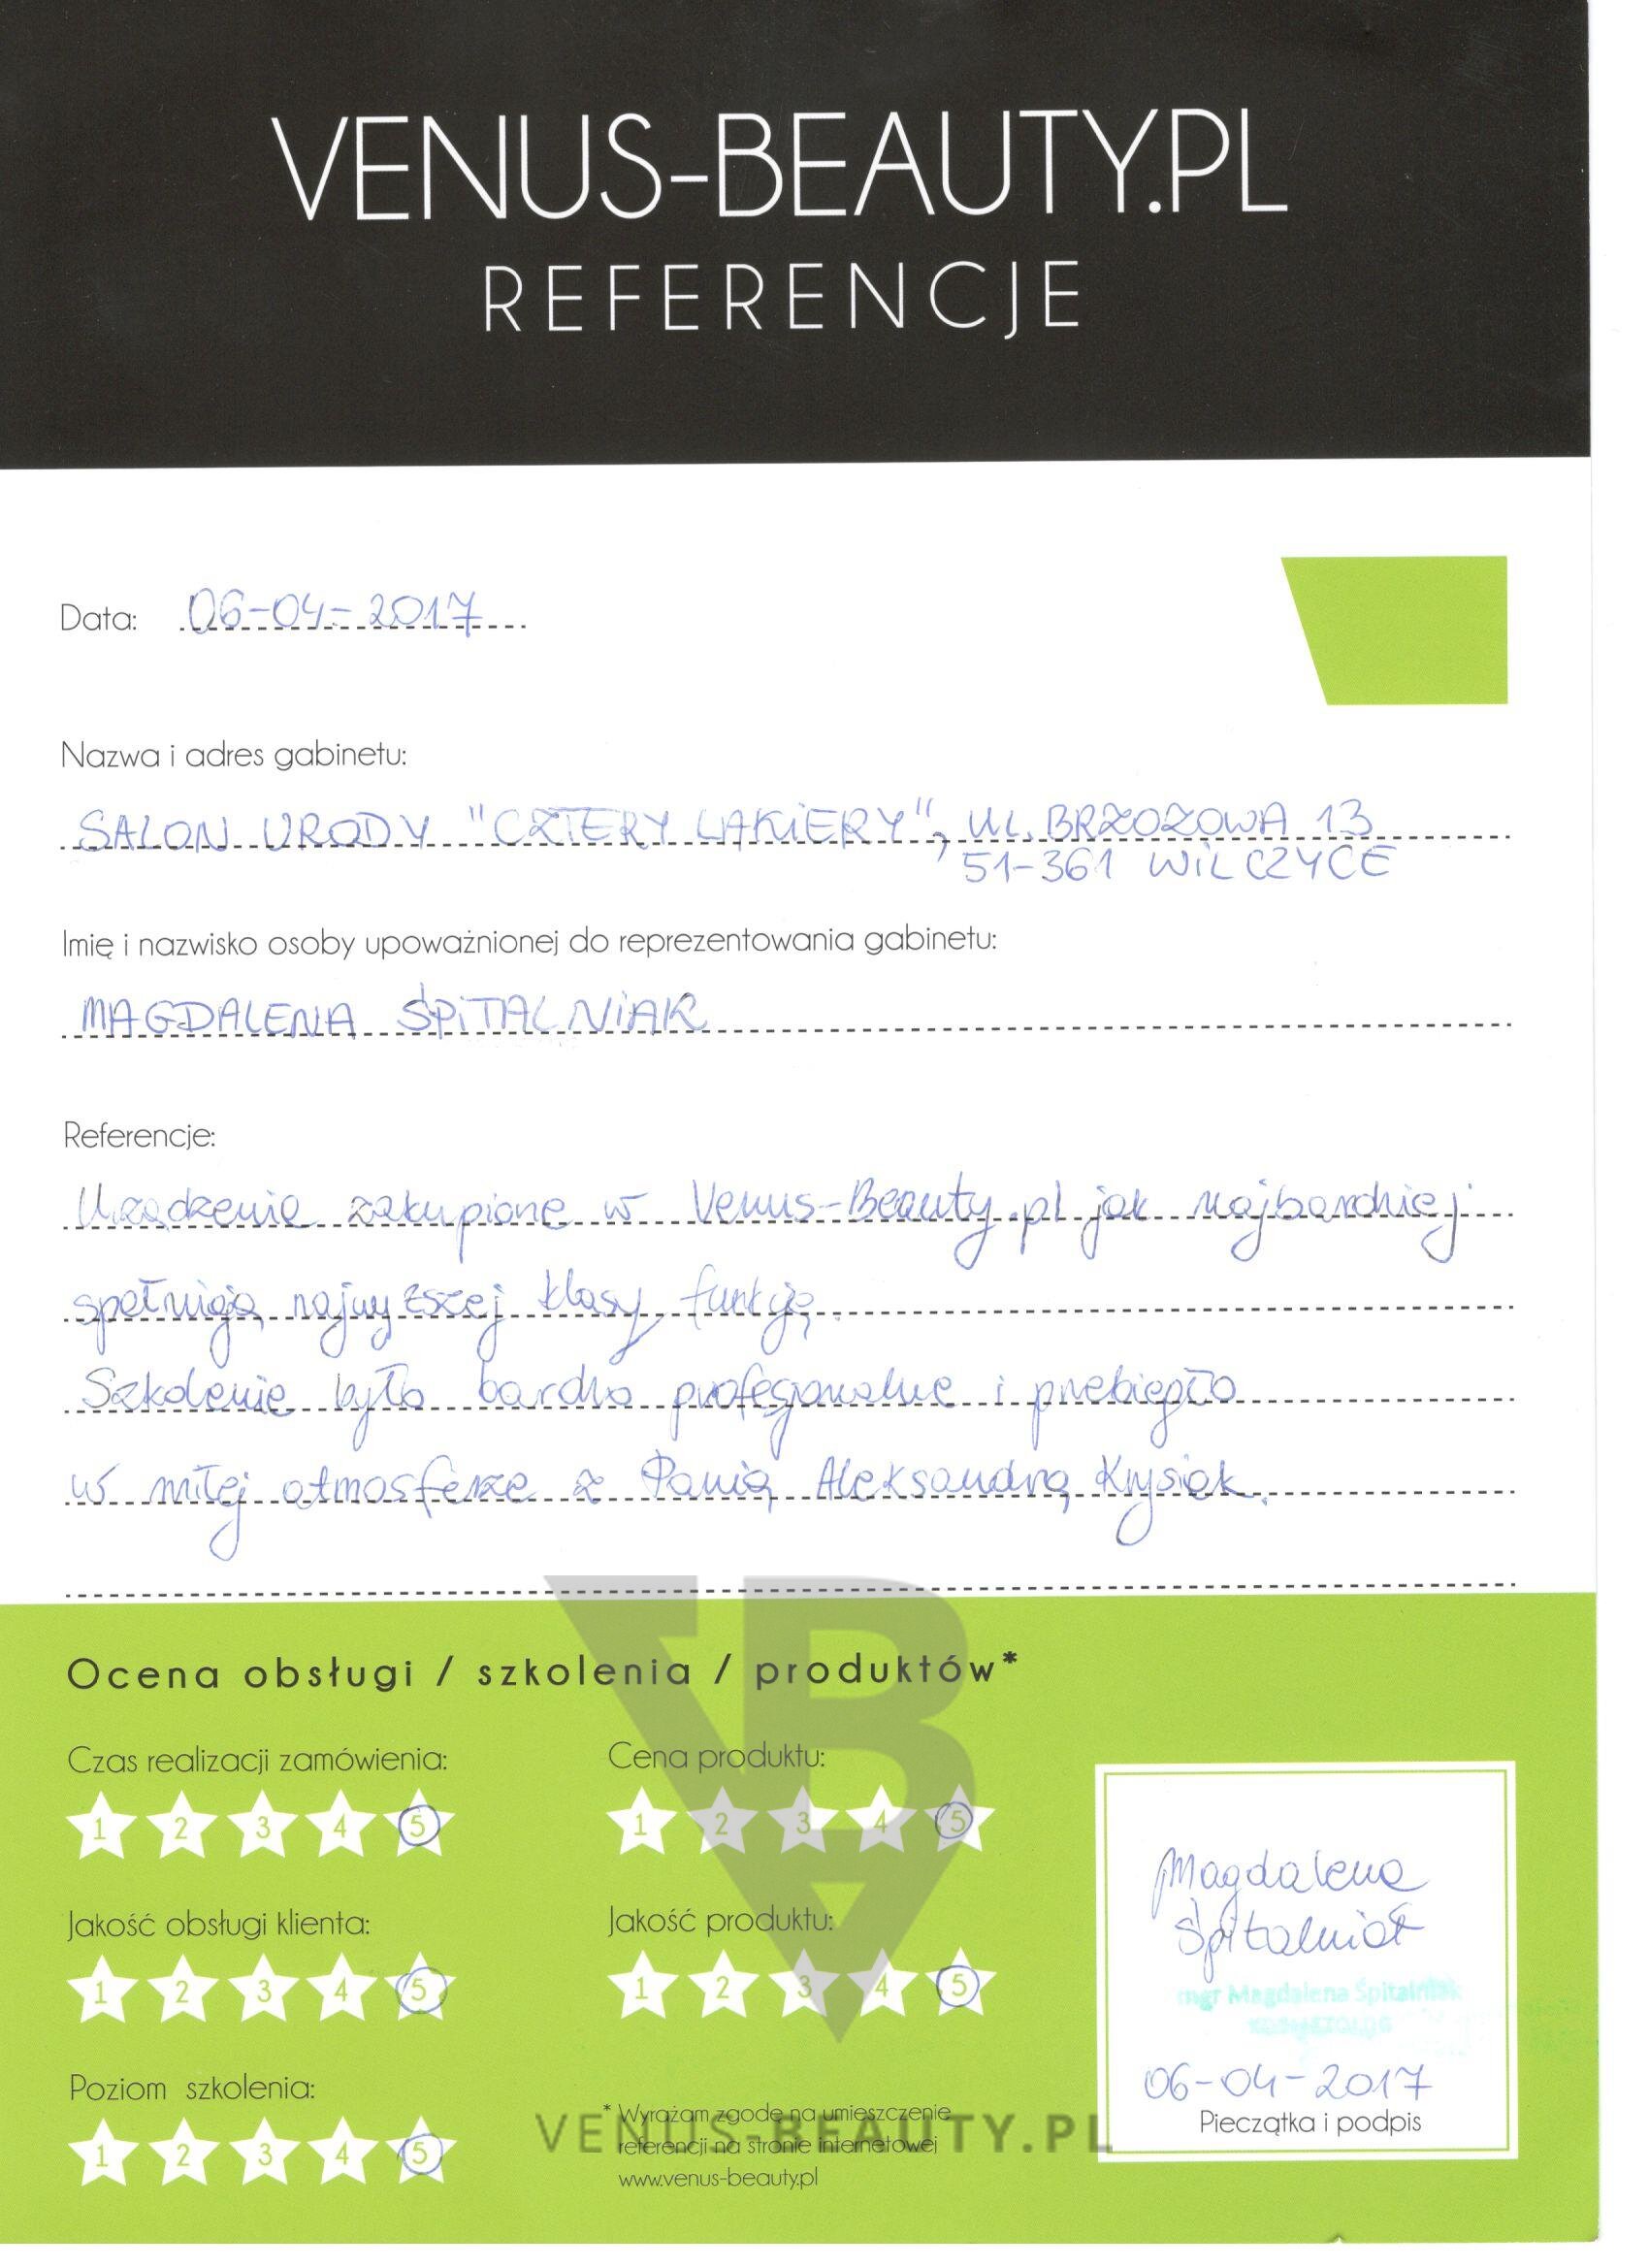 VENUS-BEAUTY.PL
REFERENCJE
Data: 06-04-2017
Nazwa i adres gabinetu:
SALON URODY "CZTERY LAKIERY", UL. BRZOZOWA 13
51-361 WILCZYCE
Imię i nazwisko osoby upoważnionej do reprezentowania gabinetu:
MAGDALENA ŚPITALNIAK
Referencje:
Urządzenia zakupione w Venus-Beauty.pl jak najbardziej
spełniają najwyższej klasy funkcję.
Szkolenie było bardzo profesjonalne i przebiegło
w miłej atmosferze z Panią Aleksandrą Krysiak.
Ocena obsługi / szkolenia / produktów*
Czas realizacji zamówienia:
1 2 3 4 5
Cena produktu:
1 2 3 4 5
Jakość obsługi klienta:
1 2 3 4 5
Jakość produktu:
1 2 3 4 5
Poziom szkolenia:
1 2 3 4 5
* Wyrażam zgodę na umieszczenie
referencji na stronie internetowej
www.venus-beauty.pl
VENUS-BEAUTY.PL
Magdalena
Śpitalniak
mgr Magdalena Śpitalniak
KOSMETOLOG
06-04-2017
Pieczątka i podpis